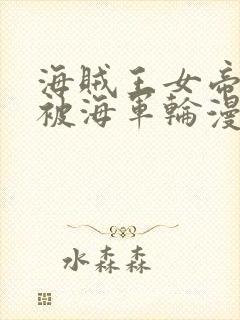 海賊王女帝
被海軍輪漫
水森森